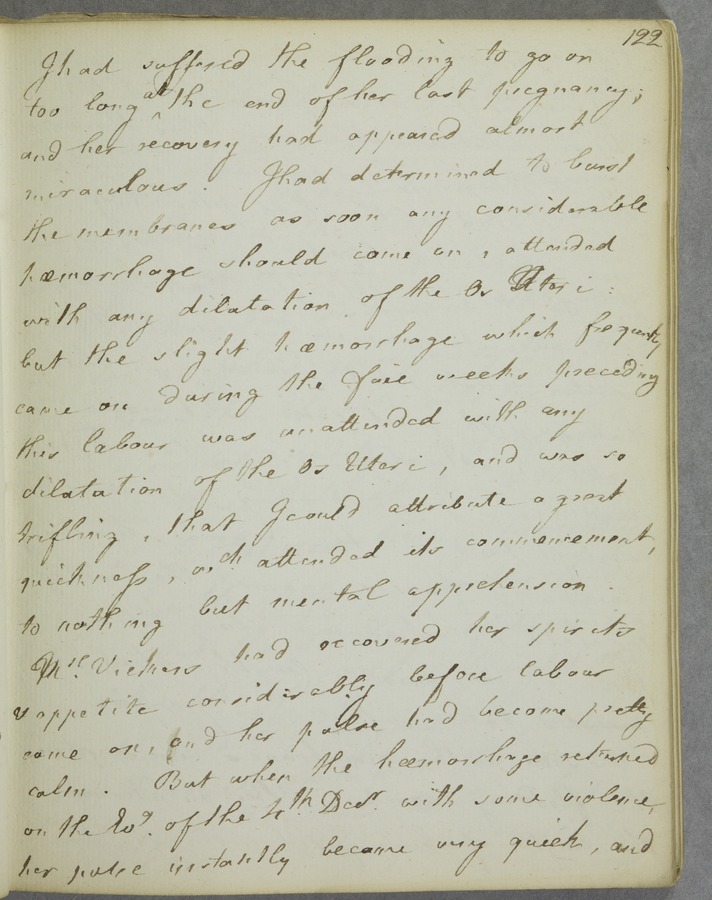 122
I had suffered the flooding to go on
too long at the end of her last pregnancy;
and her recovery had appeared almost
miraculous. I had determined to burst
the membranes as soon any considerable
hæmorrhage should come on, attended
with any dilatation of the Os Uteri:
but the slight hæmorrhage which frequently
came on during the five weeks preceding
this labour was unattended with any
dilatation of the Os Uteri, and was so
trifling, that I could attribute a great
quickness, wch attended its commencement,
to nothing but mental apprehension.
Mrs. Vickers had recovered her spirits
& appetite considerably before labour
came on, and her pulse had become pretty
calm. But when the hæmorrhage returned
on the Evg. of the 4th Decr. with some violence,
her pulse instantly became very quick, and